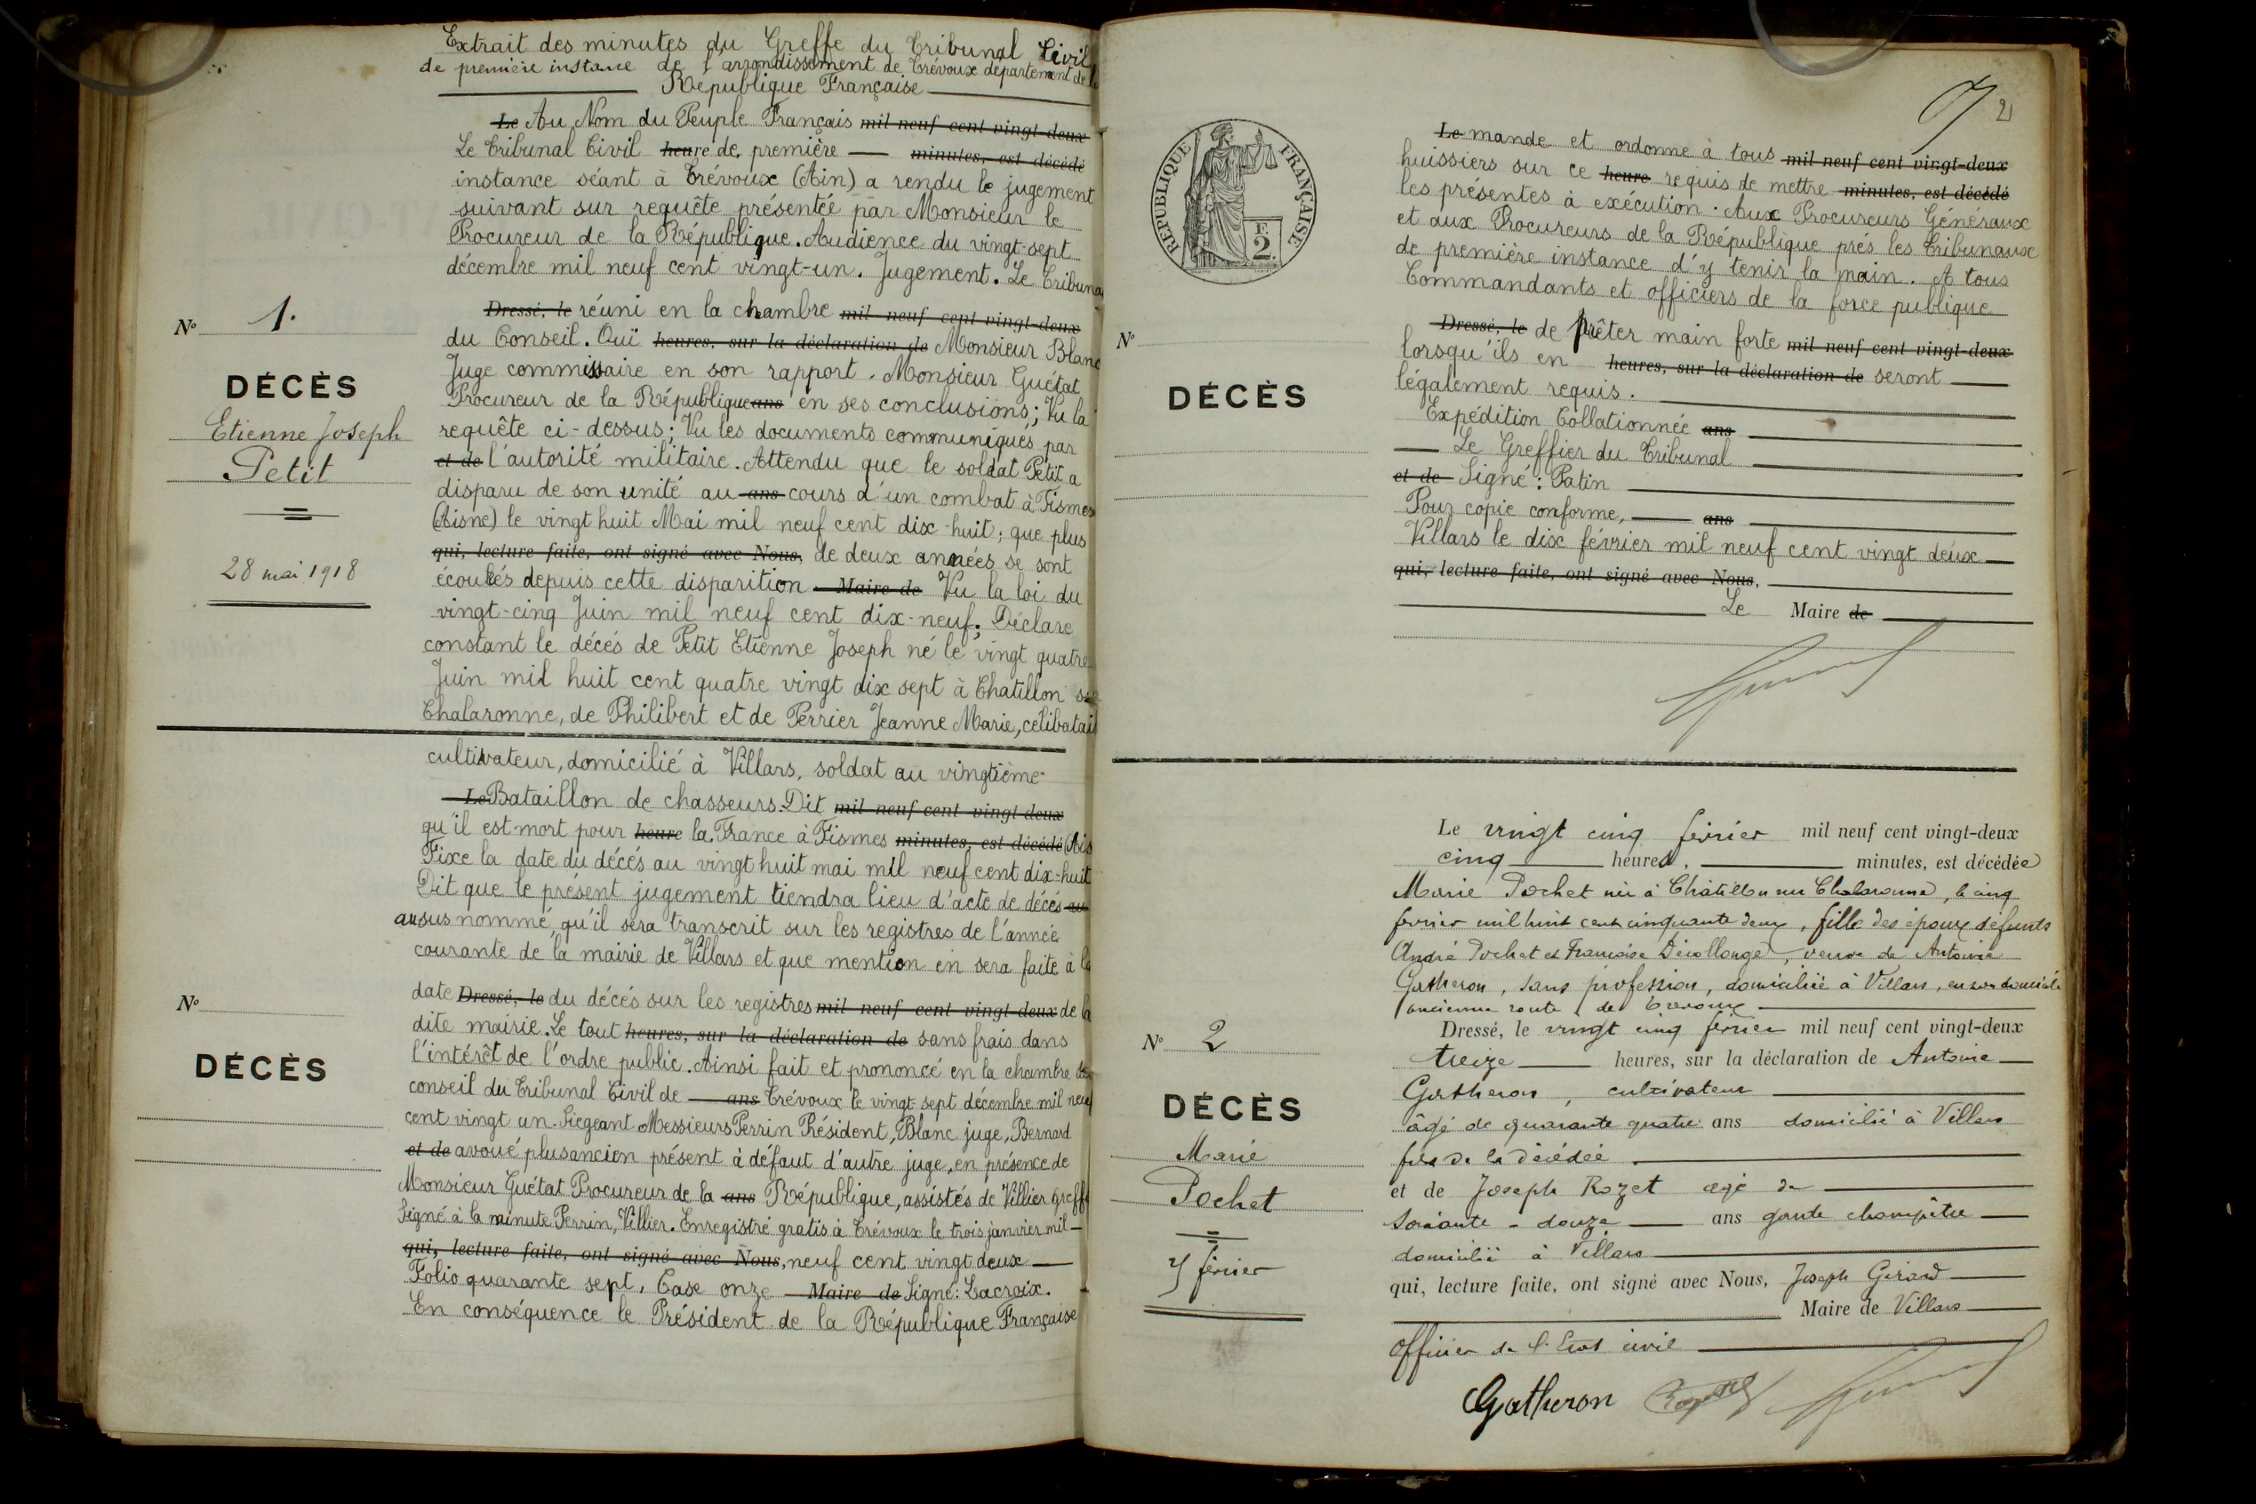 Extrait des minutes du Greffe du Tribunal Civil
de première instance de l'arrondissement de Trévoux département de
République Française
Le Au Nom du Peuple Français mil neuf cent vingt-deux
Le Tribunal Civil heure de première minutes, est décédé
instance séant à Trévoux (Ain) a rendu le jugement
suivant sur requête présentée par Monsieur le
Procureur de la République. Audience du vingt-sept
décembre mil neuf cent vingt-un. Jugement. Le Tribunal
N° 1.
DÉCÈS
Etienne Joseph
Petit
28 mai 1918
Dressé, le réuni en la chambre mil neuf cent vingt-deux
du Conseil. Ouï heures, sur la déclaration de Monsieur Blanc
Juge commissaire en son rapport. Monsieur Guétat
Procureur de la République ans en ses conclusions; Vu la
requête ci-dessus; Vu les documents communiqués par
et de l'autorité militaire. Attendu que le soldat Petit a
disparu de son unité au ans cours d'un combat à Fismes
(Aisne) le vingt huit Mai mil neuf cent dix-huit; que plus
qui, lecture faite, ont signé avec Nous, de deux années se sont
écoulés depuis cette disparition Maire de Vu la loi du
vingt-cinq Juin mil neuf cent dix-neuf; Déclare
constant le décés de Petit Etienne Joseph né le vingt quatre
Juin mil huit cent quatre vingt dix sept à Chatillon sur
Chalaronne, de Philibert et de Perrier Jeanne Marie, célibatai
cultivateur, domicilié à Villars, soldat au vingtième
Le Bataillon de chasseurs. Dit mil neuf cent vingt-deux
qu'il est mort pour heure la France à Fismes minutes, est décédé (Ais
Fixe la date du décés au vingt huit mai mil neuf cent dix-huit
Dit que le présent jugement tiendra lieu d'acte de décés au
au sus nommé, qu'il sera transcrit sur les registres de l'année
courante de la mairie de Villars et que mention en sera faite à la
N°
DÉCÈS
date Dressé, le du décés sur les registres mil neuf cent vingt-deux de la
dite mairie. Le tout heures, sur la déclaration de sans frais dans
l'intérêt de l'ordre public. Ainsi fait et prononcé en la chambre du
conseil du Tribunal Civil de ans Trévoux le vingt-sept décembre mil neuf
cent vingt un. Siègeant Messieurs Perrin Président, Blanc juge, Bernard
et de avoué plus ancien présent à défaut d'autre juge, en présence de
Monsieur Guétat Procureur de la ans République, assistés de Villier Greff
Signé à la minute Perrin, Villier. Enregistré gratis à Trévoux le trois janvier mil
qui, lecture faite, ont signé avec Nous, neuf cent vingt deux
Folio quarante sept, Case onze Maire de Signé: Lacroix.
En conséquence le Président de la République Française
2
RÉPUBLIQUE FRANÇAISE
F. 2.
Le mande et ordonne à tous mil neuf cent vingt-deux
huissiers sur ce heure requis de mettre minutes, est décédé
les présentes à exécution. Aux Procureurs Généraux
et aux Procureurs de la République près les Tribunaux
de première instance d'y tenir la main. A tous
Commandants et officiers de la force publique
N°
DÉCÈS
Dressé, le de prêter main forte mil neuf cent vingt-deux
lorsqu'ils en heures, sur la déclaration de seront
légalement requis.
Expédition Collationnée ans
Le Greffier du Tribunal
et de Signé: Patin
Pour copie conforme, ans
Villars le dix février mil neuf cent vingt deux
qui, lecture faite, ont signé avec Nous,
Le Maire de
Le vingt cinq février mil neuf cent vingt-deux
cinq heures, minutes, est décédée
Marie Pochet née à Châtillon sur Chalaronne, le cinq
février mil huit cent cinquante deux, fille des époux défunts
André Pochet et Françoise Décollonge, veuve de Antoine
Gatheron, sans profession, domiciliée à Villars, en son domicile
ancienne route de Trévoux
N° 2
DÉCÈS
Marie
Pochet
25 février
Dressé, le vingt cinq février mil neuf cent vingt-deux
treize heures, sur la déclaration de Antoine
Gatheron, cultivateur
âgé de quarante quatre ans domicilié à Villars
fils de la décédée
et de Joseph Rozet âgé de
soixante-douze ans garde champêtre
domicilié à Villars
qui, lecture faite, ont signé avec Nous, Joseph Girard
Maire de Villars
officier de l'Etat civil
Gatheron